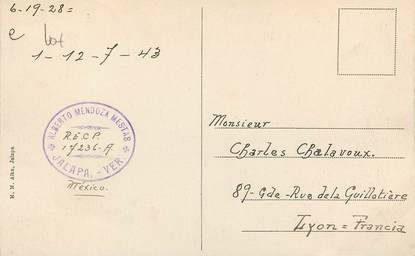 6-19-28=
e
1-12-7-43
ALBERTO MENDOZA MESTAS
R.E.C.P.
17236-A
JALAPA.-VER
México.
M. M. Alba, Jalapa
Monsieur
Charles Chalavoux.
89-Gde-Rue de la Guillotière
Lyon = Francia